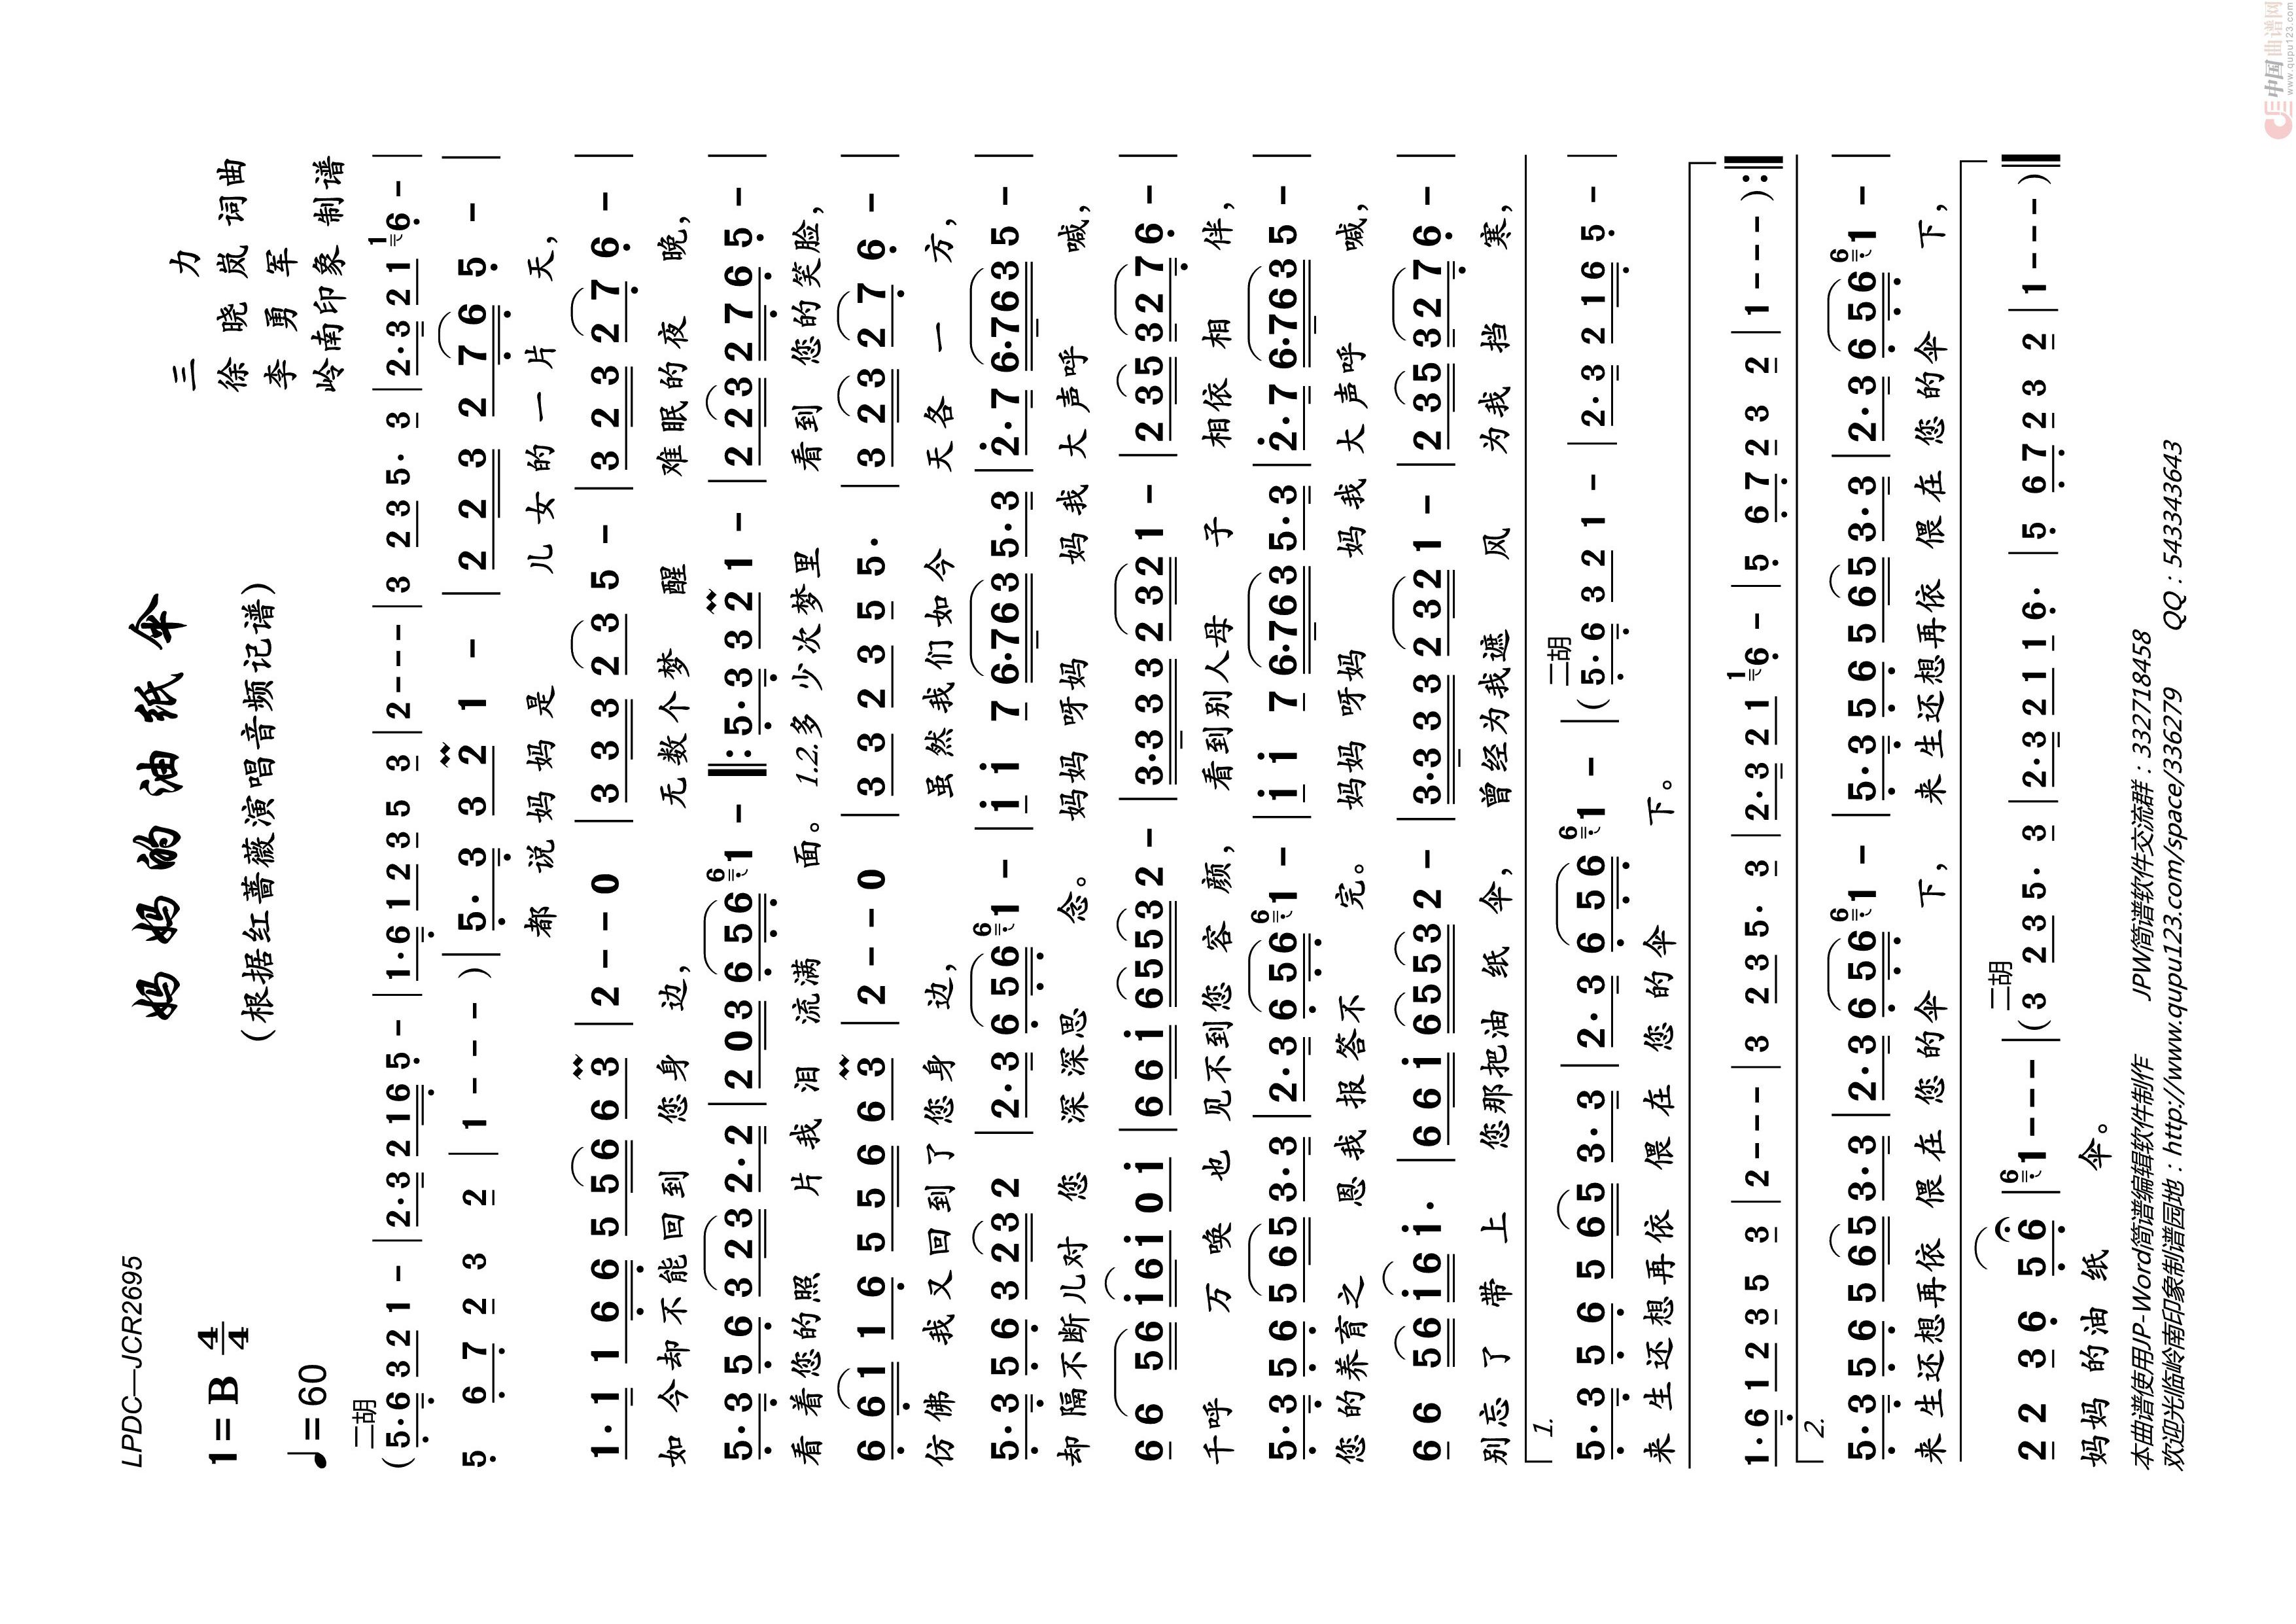 LPDC—JCR2695
妈妈的油纸伞
（根据红蔷薇演唱音频记谱）
1=B 4/4
♩=60
三力
徐晓岚词曲
李勇军
岭南印象制谱
二胡
(5·6 3 2 1 - | 2·3 2 1 6 5 - | 1·6 1 2 3 5 3 | 2 - - - | 3 2 3 5· 3 | 2·3 2 1 1 6 - |
5 6 7 2 3 2 | 1 - - - ) | 5·3 3 2 1 - | 2 2 3 2 7 6 5 - |
都说妈妈是儿女的一片天，
1·1 1 6 6 5 5 6 6 3 | 2 - - 0 | 3 3 3 2 3 5 - | 3 2 3 2 7 6 - |
如今却不能回到您身边，无数个梦醒难眠的夜晚，
5·3 5 6 3 2 3 2·2 | 2 0 3 6 5 6 6 1 - ‖: 5·3 3 2 1 - | 2 2 3 2 7 6 5 - |
看着您的照片我泪流满面。1.2.多少次梦里看到您的笑脸，
6 6 1 1 6 5 5 6 6 3 | 2 - - 0 | 3 3 2 3 5 5· | 3 2 3 2 7 6 - |
仿佛我又回到了您身边，虽然我们如今天各一方，
5·3 5 6 3 2 3 2 | 2·3 6 5 6 6 1 - | 1 1 7 6·7 6 3 5·3 | 2·7 6·7 6 3 5 - |
却隔不断儿对您深深思念。妈妈呀妈妈我大声呼喊，
6 6 5 6 1 6 1 0 1 | 6 6 1 6 5 5 3 2 - | 3·3 3 3 2 3 2 1 - | 2 3 5 3 2 7 6 - |
千呼万唤也见不到您容颜，看到别人母子相依相伴，
5·3 5 6 5 6 5 3·3 | 2·3 6 5 6 6 1 - | 1 1 7 6·7 6 3 5·3 | 2·7 6·7 6 3 5 - |
您的养育之恩我报答不完。妈妈呀妈妈我大声呼喊，
6 6 5 6 1 6 1· | 6 6 1 6 5 5 3 2 - | 3·3 3 3 2 3 2 1 - | 2 3 5 3 2 7 6 - |
别忘了带上您那把油纸伞，曾经为我遮风为我挡寒，
1.
二胡
5·3 5 6 5 6 5 3·3 | 2·3 6 5 6 6 1 - | (5·6 3 2 1 - | 2·3 2 1 6 5 - |
来生还想再依偎在您的伞下。
1·6 1 2 3 5 3 | 2 - - - | 3 2 3 5· 3 | 2·3 2 1 1 6 - | 5 6 7 2 3 2 | 1 - - - ) :‖
2.
5·3 5 6 5 6 5 3·3 | 2·3 6 5 6 6 1 - | 5·3 5 6 5 6 5 3·3 | 2·3 6 5 6 6 1 - |
来生还想再依偎在您的伞下，来生还想再依偎在您的伞下，
二胡
2 2 3 6 5 6 | 6 1 - - - | (3 2 3 5· 3 | 2·3 2 1 1 6· | 5 6 7 2 3 2 | 1 - - - ) ‖
妈妈的油纸伞。
本曲谱使用JP-Word简谱编辑软件制作 JPW简谱软件交流群：332718458
欢迎光临岭南印象制谱园地：http://www.qupu123.com/space/336279 QQ：543343643
中国曲谱网
www.qupu123.com